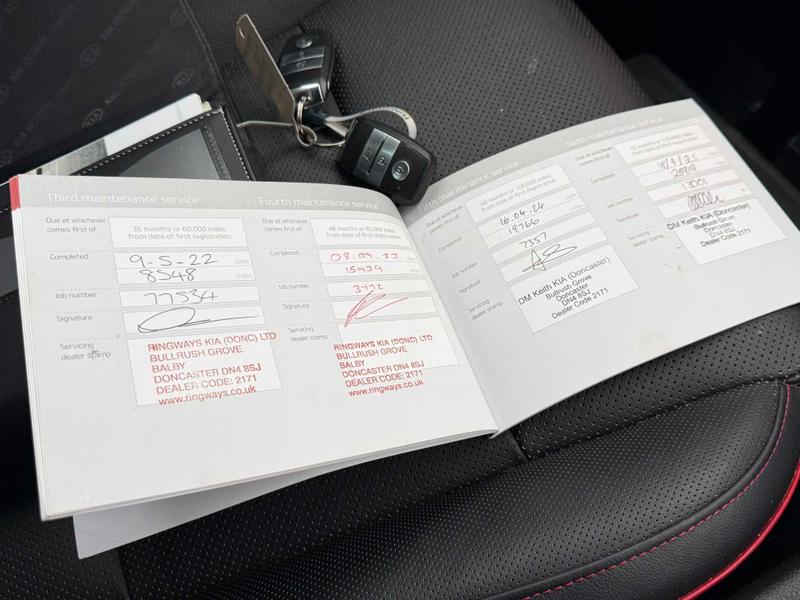 Third maintenance service
Due at whichever
comes first of
36 months or 60,000 miles
from date of first registration
Completed
9-5-22 date
8548 miles
Job number
77534
Signature
Servicing
dealer stamp
RINGWAYS KIA (DONC) LTD
BULLRUSH GROVE
BALBY
DONCASTER DN4 8SJ
DEALER CODE: 2171
www.ringways.co.uk
16
Fourth maintenance service
Due at whichever
comes first of
48 months or 80,000 miles
from date of first registration
Completed
date
miles
Job number
Signature
Servicing
dealer stamp
RINGWAYS KIA (DONC) LTD
BULLRUSH GROVE
BALBY
DONCASTER DN4 8SJ
DEALER CODE: 2171
www.ringways.co.uk
maintenance service
Due at whichever
comes first of
60 months or 100,000 miles
from date of first registration
Completed
16.04.24
Job number
7357
Signature
Servicing
dealer stamp
DM Keith KIA (Doncaster)
Bullrush Grove
Doncaster
DN4 8SJ
Dealer Code 2171
Sixth maintenance service
Due at whichever
comes first of
72 months or 120,000 miles
from date of first registration
Completed
Job number
13001
Signature
Servicing
dealer stamp
DM Keith KIA (Doncaster)
Bullrush Grove
Doncaster
DN4 8SJ
Dealer Code 2171